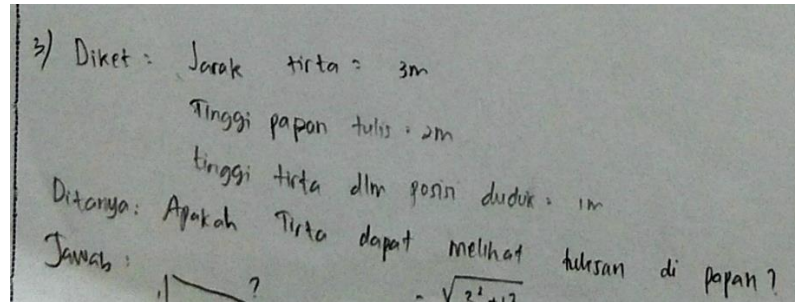 3) Diket : Jarak tirta = 3m
Tinggi papan tulis = 2m
tinggi tirta dlm posisi duduk = 1m
Ditanya : Apakah Tirta dapat melihat tulisan di papan ?
Jawab :
?